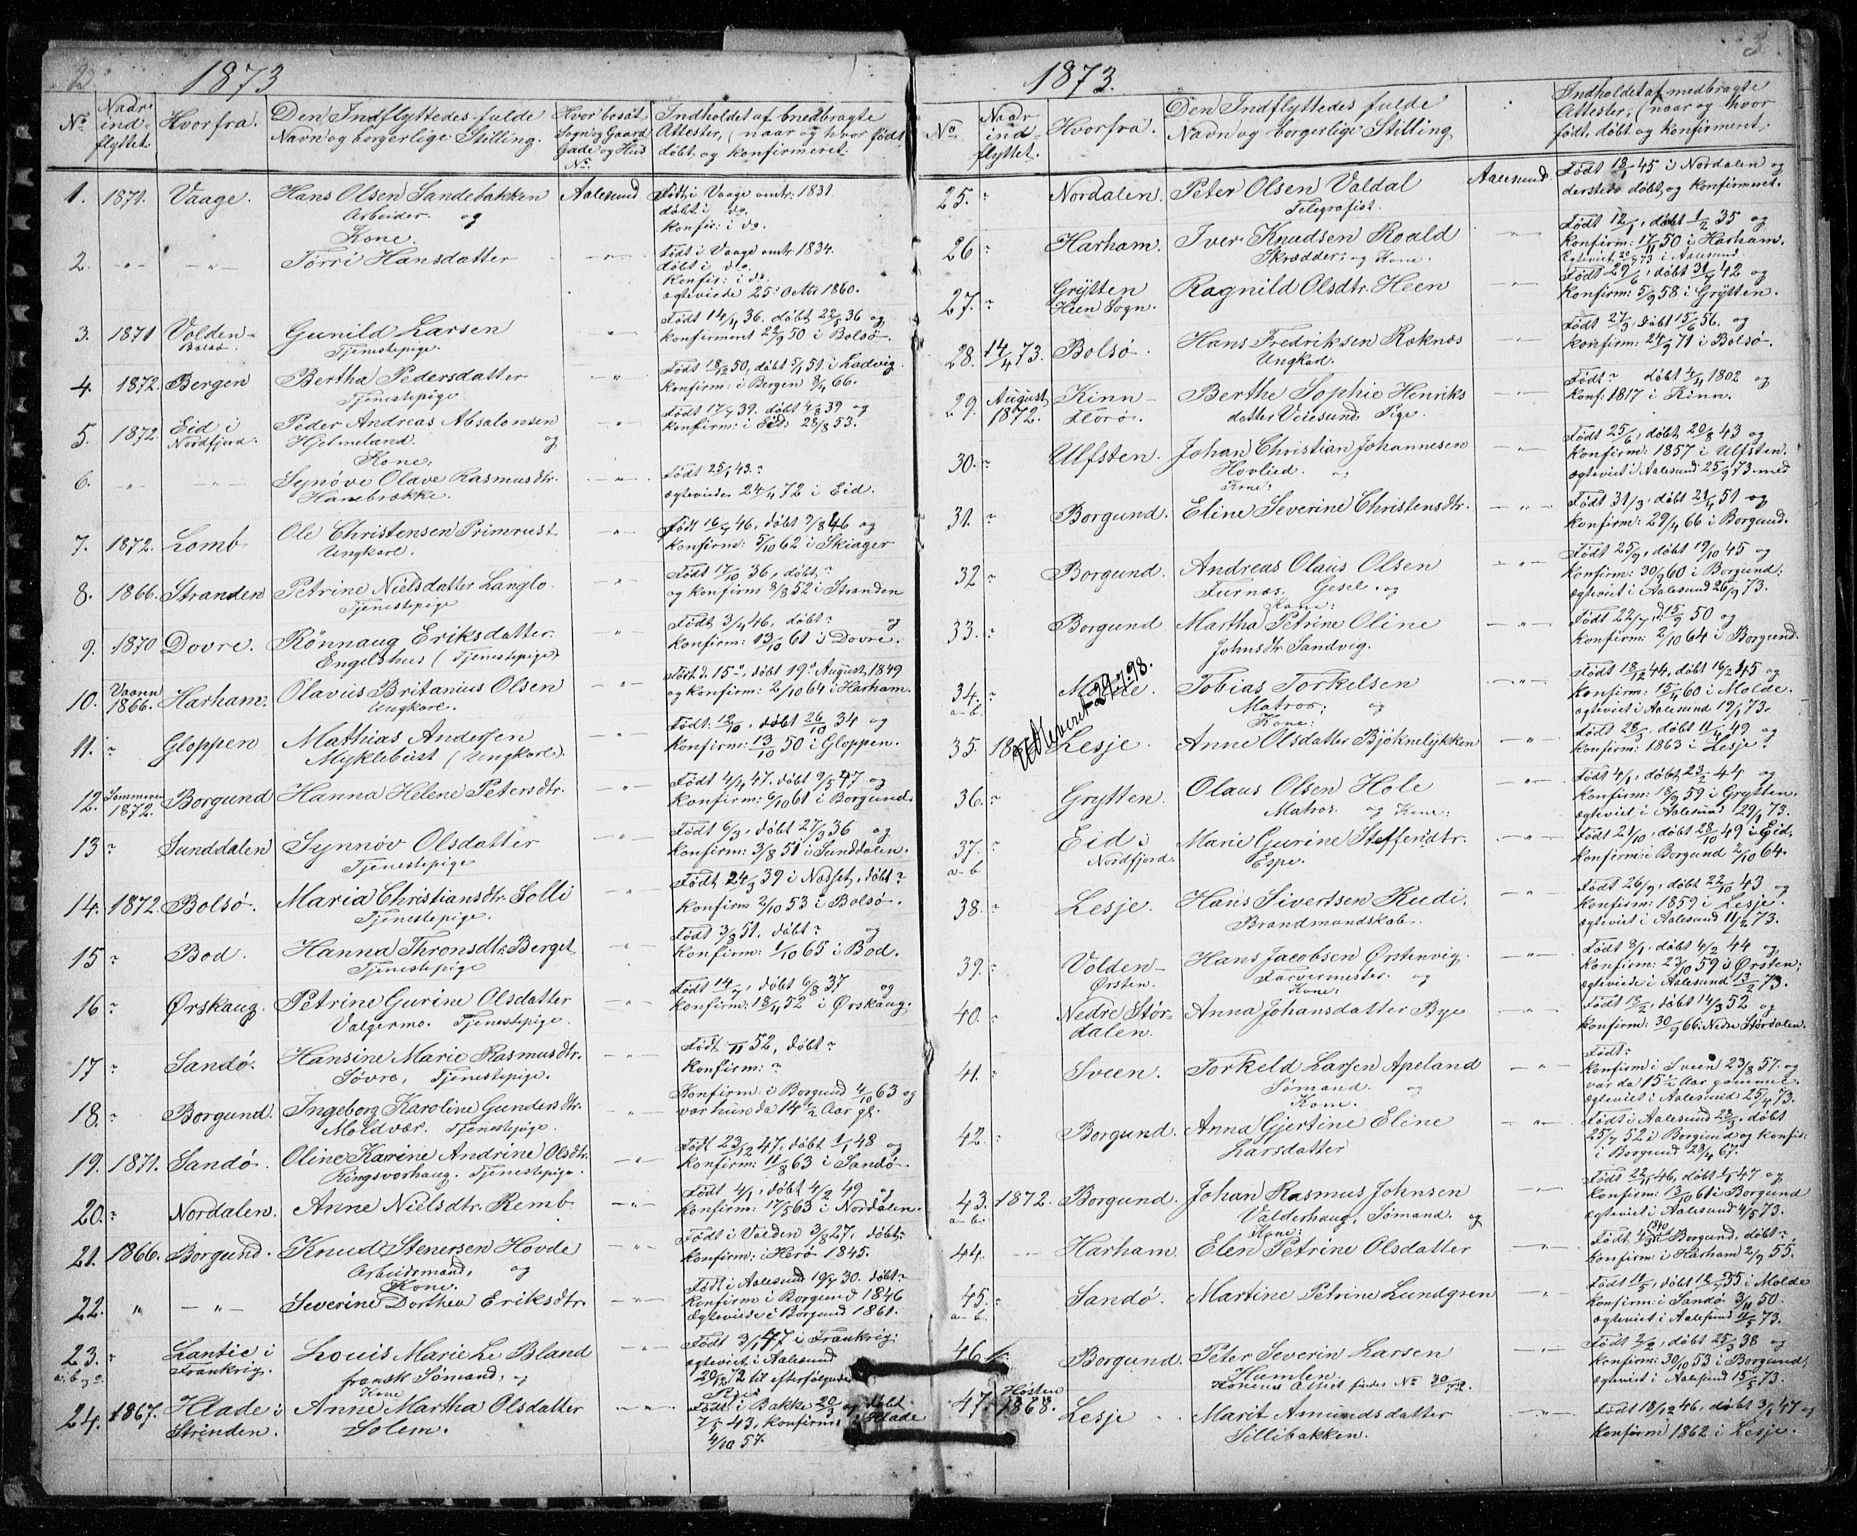 2.
1873
No
Naar ind-flyttet.
Hvorfra.
Den Indflyttedes fulde Navn og borgerlige Stilling.
Hvor bosat, Sogn og Gaard, Gade og Hus No.
Indholdet af medbragte Attester, (naar og hvor født, døbt og konfirmeret.
1. 1871. Vaage. Hans Olsen Sandebakken Aalesund Født i Vaage omtr: 1831
Arbeider. og døbt i do.
Kone. konfir: i do.
2. -„- -„- Torri Hansdatter -„- Født i Vaage omtr. 1834.
døbt i do.
konfir: i do.
ægteviede 25. Octbr 1860.
3. 1871 Volden- Gunild Larsen -„- Født 14/4 36. døbt 22/5 36 og
Bolsø. Tjenestepige. konfirmeret 22/9 50 i Bolsø.
4 1872. Bergen Bertha Pedersdatter „ Født 18/12 50, døbt 5/1 51. i Ladvig.
Tjenestepige. konfirm: i Bergen 8/4 66.
5. 1872. Eid i Peder Andreas Absalonsen -„- Født 17/7 39. døbt 4/8 39 og
Nordfjord. Hjelmeland. og konfirm: i Eid 28/8 53.
Kone:
6. „ -„- Synøve Olave Rasmusdtr. -„- Født 25/1 43.?
Hanebrække. ægteviedes 24/4 72 i Eid.
7. 1872. Lomb Ole Christensen Primrust „ Født 16/7 46, døbt 9/8 46 og
Ungkarl. konfirm: 5/10 62 i Skiager
8. 1866. Stranden Petrine Nielsdatter Langlo. -„- Født 17/10 36, døbt ?
Tjenestepige og konfirm 8/8 52 i Stranden
9. 1870 Dovre. Rönnaug Eriksdatter. -„- Født 3/4 46, døbt ? og
Engelshus (Tjenestepige) konfirm: 13/10 61 i Dovre.
10. Vaaren 1866. Harham. Olavus Britanius Olsen -„- Født d. 15de, døbt 19de August 1849
Ungkarl. og konfirm: 2/10 64 i Harham.
11. ? Gloppen Mathias Andersen -„- Født: 12/10, døbt 26/10 34 og
Myklebust (Ungkarl.) konfirm: 13/10 50 i Gloppen.
12. Sommeren 1872. Borgund Hanna Helene Petersdtr. „ Født 4/4 47. døbt 9/5 47 og
konfirm: 6/10 61 i Borgund.
13 ? Sunddalen Synnøv Olsdatter -„- Født 6/3, døbt 27/3 36 og
Tjenestepige konfirm: 3/8 51 i Sunddalen.
14. 1872. Bolsø. Maria Christiansdtr. Solli „ Født 24/3 39 i Nesset, døbt ?
Tjenestepige. konfirm 2/10 53 i Bolsø.
15 ? Bod. Hanna Thronsdtr. Berget „ Født 3/8 51. døbt ? og
Tjenestepige konfirm: 1/10 65 i Bod.
16 ? Ørskaug. Petrine Gurine Olsdatter -„- Født 14/7, døbt 6/8 37 og
Valgermo. Tjenestepige. konfirm: 18/4 52 i Ørskaug.
17 ? Sandø. Hansine Marie Rasmusdtr. -„- Født /11 52, døbt ?
Søvre, Tjenestepige. konfirm: ?
18. „ Borgund. Ingeborg Karoline Gundersdtr. -„- Konfirm i Borgund 4/10 63 og
Moldvær. Tjenestepige. var hun da 14 1/2 Aar gl.
19. 1871. Sandø. Oline Karine Andrine Olsdtr. -„- Født 23/12 47, døbt 1/1 48 og
Ringsvorhaug. Tjenestepige. konfirm: 11/8 63 i Sandø.
20. ? Nordalen. Anne Nielsdtr. Remb -„- Født 4/1, døbt 4/2 49 og
konfirm: 17/5 63 i Nordalen.
21. 1866. Borgund. Knud Stenersen Hovde „ Født i Volden 3/8 27, døbt,
Arbeidsmand, og konfirm: i Herø 1845.
Kone.
22. „ -„- Severine Dorthea Eriksdtr. -„- Født i Aalesund 19/7 30. døbt ?
konfirm i Borgund 1846
ægteviede i Borgund 1861.
23. ? Lantic i Louis Marie Le Bland „ Født 3/1 47 i Frankrig.
a. b og c. Frankrig. fransk Sømand, og ægteviet i Aalesund
Kone 20/12 72 til efterfølgende
24. 1867. Hlade i Anne Martha Olsdatter -„- Født i Bakke 20/3 og døbt
Strinden. Solem. 7/5 43, konfirm: i Hlade
4/10 57.
3.
1873.
No
Naar ind-flyttet.
Hvorfra.
Den Indflyttedes fulde Navn og borgerlige Stilling
Indholdet af medbragte Attester, (naar og hvor født, døbt og konfirmeret.
25. ? Nordalen. Peter Olsen Valdal Aalesund. Født 18/1 45 i Nordalen og
Telegrafist. dersteds døbt og konfirmeret.
26 ? Harham. Iver Knudsen Roald -„- Født 12/1, døbt 1/2 35 og
Skrædder, og Kone: konfirm: 17/11 50 i Harham.
27. ? Grÿtten Ragnild Olsdtr. Heen -„- Født 29/6, døbt 31/7 42 og
Heen Sogn. konfirm: 5/9 58 i Grÿtten.
28. 14/4 73. Bolsö. Hans Fredriksen Røknes -„- Født 27/3, døbt 15/6 56. og
Ungkarl. konfirm: 24/9 71 i Bolsø.
29. August 1872. Kinn- Berthe Sophie Henriks -„- Født ? døbt 4/4 1802 og
Florø. datter Veiesund. Pige. konf: 1817 i Kinn.
30. ? Ulfsten. Johan Christian Johannesen -„- Født 25/6, døbt 20/8 43 og
Hovlied. og konfirm: 1857 i Ulfsten.
Kone: ægteviet i Aalesund 25/9 73 med
31. ? Borgund. Eline Severine Christensdtr. -„- Født 31/3, døbt 21/4 51 og
konfirm: 29/4 66 i Borgund.
32 ? Borgund. Andreas Olaus Olsen -„- Født 25/9, døbt 19/10 45 og
Furnes. Gesel. og konfirm: 30/9 60 i Borgund:
Kone: ægteviet i Aalesund 26/9 73.
33. ? Borgund Martha Petrine Oline -„- Født 22/7 d. 15/9 50 og
Johnsdtr. Sandvig. konfirm: 2/10 64 i Borgund.
34. ? Molde. Tobias Torkelsen -„- Født 18/12 44, døbt 16/2 45 og
a-b. Matros; og konfirm: 15/4 60 i Molde.
Kone: ægteviet i Aalesund 19/1 73.
Udleveret 29-7-98.
35. Lesje. Anne Olsdatter Bjøknelykken -„- Født 28/3, døbt 11/4 49 og
konfirm: 1863 i Lesje?
36. ? Grytten. Olaus Olsen Hole -„- Født 4/1, døbt 23/2 44 og
Matros. og Kone: konfirm: 18/9 59 i Grytten.
ægteviet i Aalesund 29/1 73.
37. ? Eid i Marie Gurine Steffendtr. -„- Født 21/10, døbt 28/10 49 i Eid.
a-b Nordfjord. Espe. konfirm: i Borgund 2/10 64.
38. ? Lesje. Hans Sivertsen Rudi -„- Født 26/9, døbt 22/10 43 og
Brandmandskab. konfirm: 1859 i Lesje.
ægteviet i Aalesund 11/2 73.
39. ? Volden- Hans Jacobsen Ørstenvig, -„- Født 8/1, døbt 4/2 44 og
Ørsten. Farvermester. og konfirm: 23/10 59 i Ørsten;
Kone: ægteviede i Aalesund 13/2 73.
40. ? Nedre Stør- Anna Johansdatter Bye -„- Født 13/2, døbt 14/3 52 og
dalen. konfirm: 30/9 66. Nedre Størdalen.
41. ? Sveen. Torkeld Larsen Apeland -„- Født ?
Sømand. og konfirm i Sveen 23/8 57. og
Kone. var da 15 1/2 Aar gammel.
ægteviet i Aalesund 25/4 73.
42. ? Borgund. Anna Gjertine Eline -„- Født i Aalesund døbt
Larsdatter 25/7 52 i Borgund og konfir:
i Borgund 29/4 67.
43. 1872. Borgund. Johan Rasmus Johnsen -„- Født 22/11 46, døbt 1/1 47 og
a-b. Valderhaug, Sømand. og konfirm: 13/10 61 i Borgund
Kone: ægteviet i Aalesund 4/5 73.
44. -„- Harham. Elen Petrine Olsdatter -„- Født Borgund, døbt ?
konfirm: i Harham 2/9 55.
45. ? Sandø. Martine Petrine Lundgren „ Født 11/5, døbt i Molde
a-b. konfirm: i Sandø 3/11 50.
ægteviet i Aalesund 11/5 73.
46 Borgund. Peter Severin Larsen „ Født 2/2, døbt 25/3 38 og
Humlen. konfirm: 30/10 53 i Borgund,
Konens Attest findes No 30/72. ægteviet i Aalesund 15/5 73.
47. Høsten 1868. Lesje. Marit Amundsdatter -„- Født 18/12 46, døbt 3/1 47 og
Sillibakken. konfirm: 1862 i Lesje.